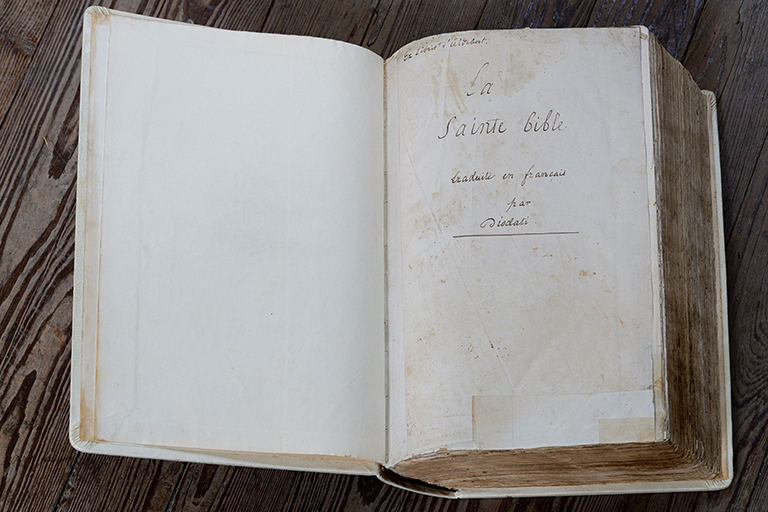 La
Sainte bible.
traduite en français
par
Diodati